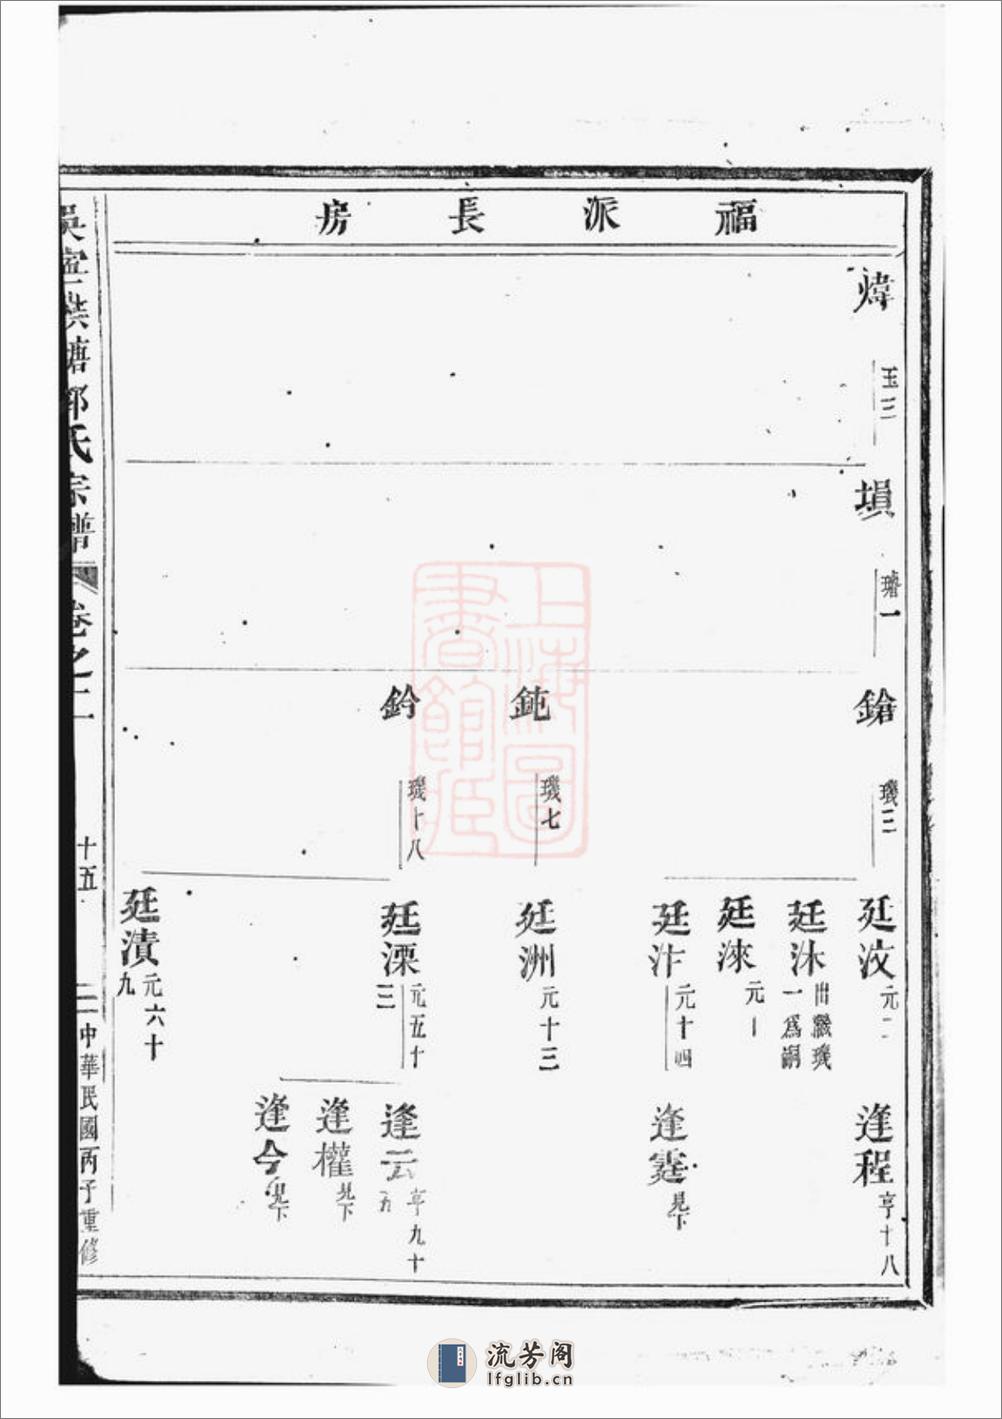 福派長房
煒
玉三
塤
璿一
鎗
璣三
鈍
璣七
鈐
璣十八
廷汶
元二
廷沐
出繼璣
一爲嗣
廷淶
元一
廷汴
元十四
廷洲
元十三
廷溧
元五十
三
廷漬
元六十
九
逢程
亨十八
逢霆
見下
逢云
亨九十
五
逢權
見下
逢今
見下
吳寧洪塘郭氏宗譜
卷之二
十五
中華民國丙子重修
上海圖書館藏
流芳阁
lfglib.cn